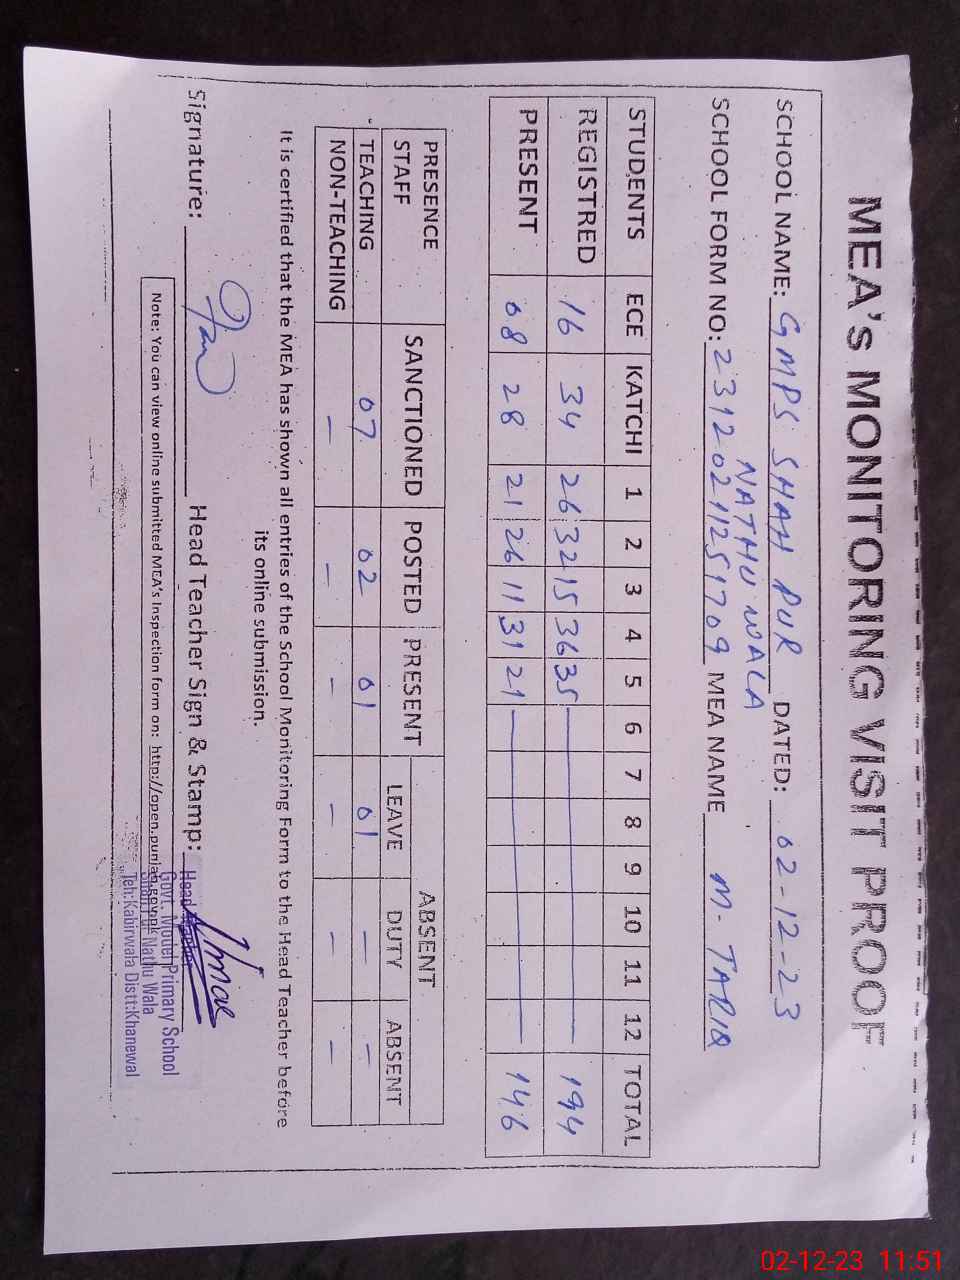 MEA's MONITORING VISIT PROOF
SCHOOL NAME: GMPS SHAH PUR DATED: 02-12-23
NATHU WALA
SCHOOL FORM NO: 23120211251709 MEA NAME M. TARIQ
STUDENTS ECE KATCHI 1 2 3 4 5 6 7 8 9 10 11 12 TOTAL
REGISTRED 16 34 26 32 15 36 35 194
PRESENT 08 28 21 26 11 31 21 146
PRESENCE STAFF SANCTIONED POSTED PRESENT ABSENT
LEAVE DUTY ABSENT
TEACHING 07 02 01 01 - -
NON-TEACHING - - - - - -
It is certified that the MEA has shown all entries of the School Monitoring Form to the Head Teacher before
its online submission.
Signature: Head Teacher Sign & Stamp:
Head Teacher
Govt. Model Primary School
Nathu Wala
Teh:Kabirwala Distt:Khanewal
Note: You can view online submitted MEA's Inspection form on: http://open.punjab.gov.pk
02-12-23 11:51